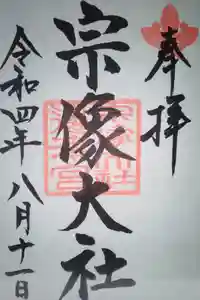 奉拝
宗像大社
令和四年八月十一日